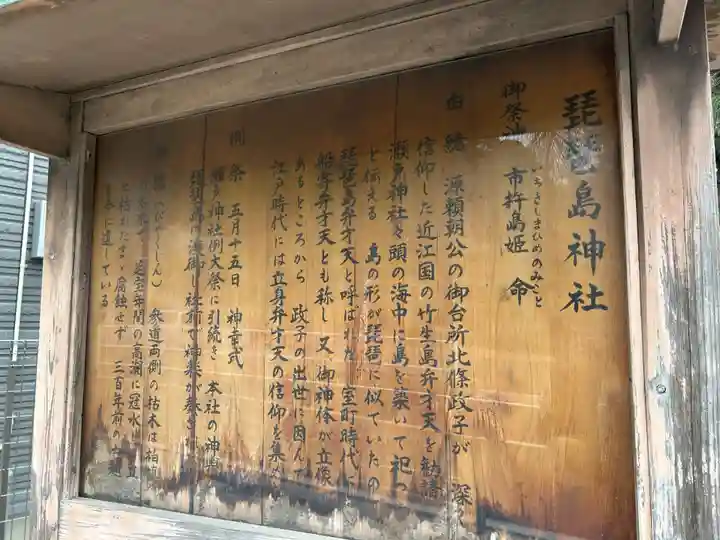 琵琶島神社
御祭神 市杵島姫 命
いちきしまひめのみこと
由緒 源頼朝公の御台所北條政子が 深く
信仰した近江国の竹生島弁才天を勧請
瀬戸神社々頭の海中に島を築いて祀っ
と伝える 島の形が琵琶に似ていたの
琵琶島弁才天と呼ばれた 室町時代に
船寄弁才天とも称し 又 御神体が立像
あるところから 政子の出世に因んで
江戸時代には立身弁才天の信仰を集
例祭 五月十五日 神幸式
瀬戸神社例大祭に引続き 本社の神輿
琵琶島に渡御し社前で神楽が奏
(びやくしん) 参道両側の枯木は柏
延宝年間の高潮に冠水
と枯れたまゝ腐蝕せず 三百年前の
を今に遺している